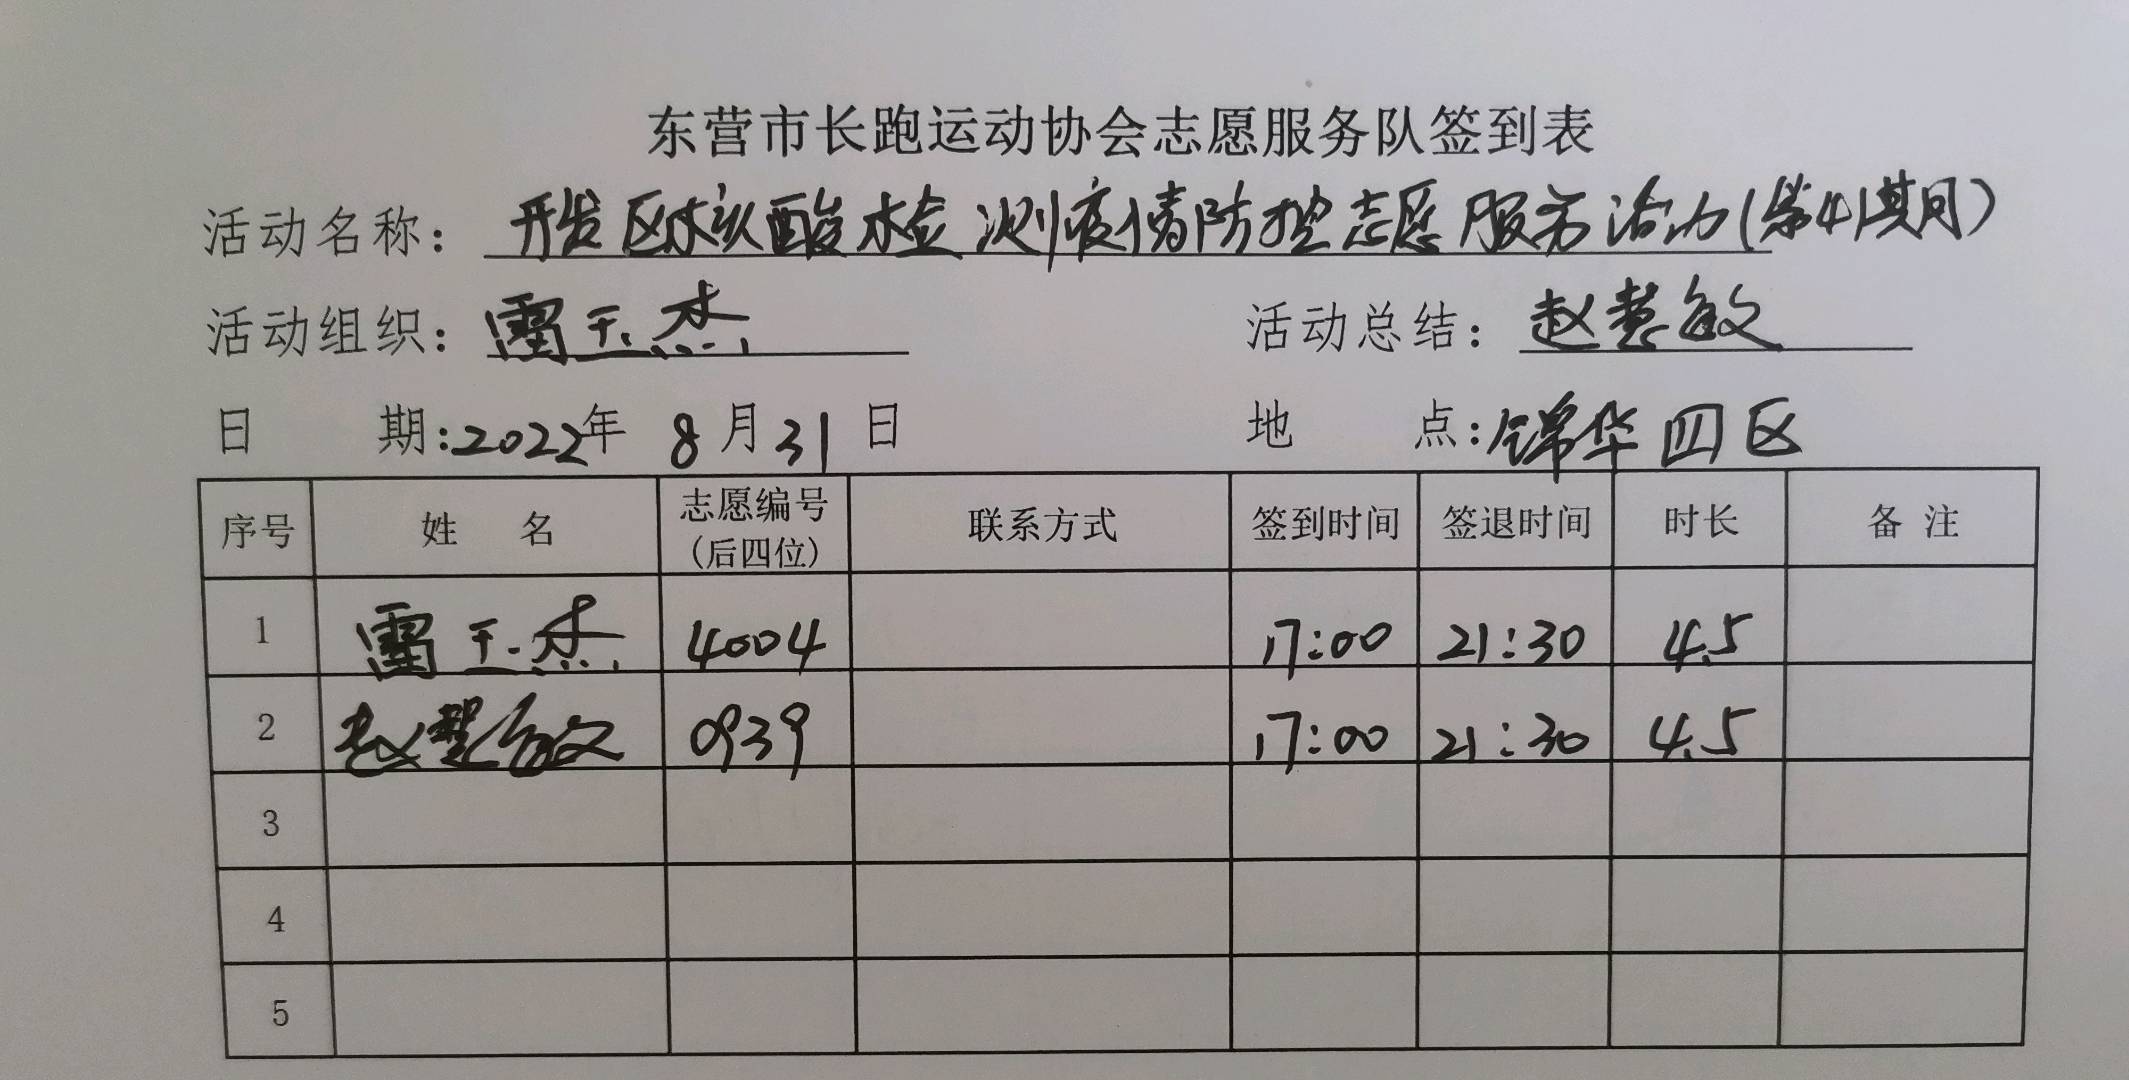 东营市长跑运动协会志愿服务队签到表
活动名称：开发区核酸检测疫情防控志愿服务活动(第41期)
活动组织：雷玉杰 活动总结：赵慧敏
日 期：2022年 8月31日 地 点：锦华四区
序号 姓 名 志愿编号(后四位) 联系方式 签到时间 签退时间 时长 备注
1 雷玉杰 4004 17:00 21:30 4.5
2 赵慧敏 0939 17:00 21:30 4.5
3
4
5